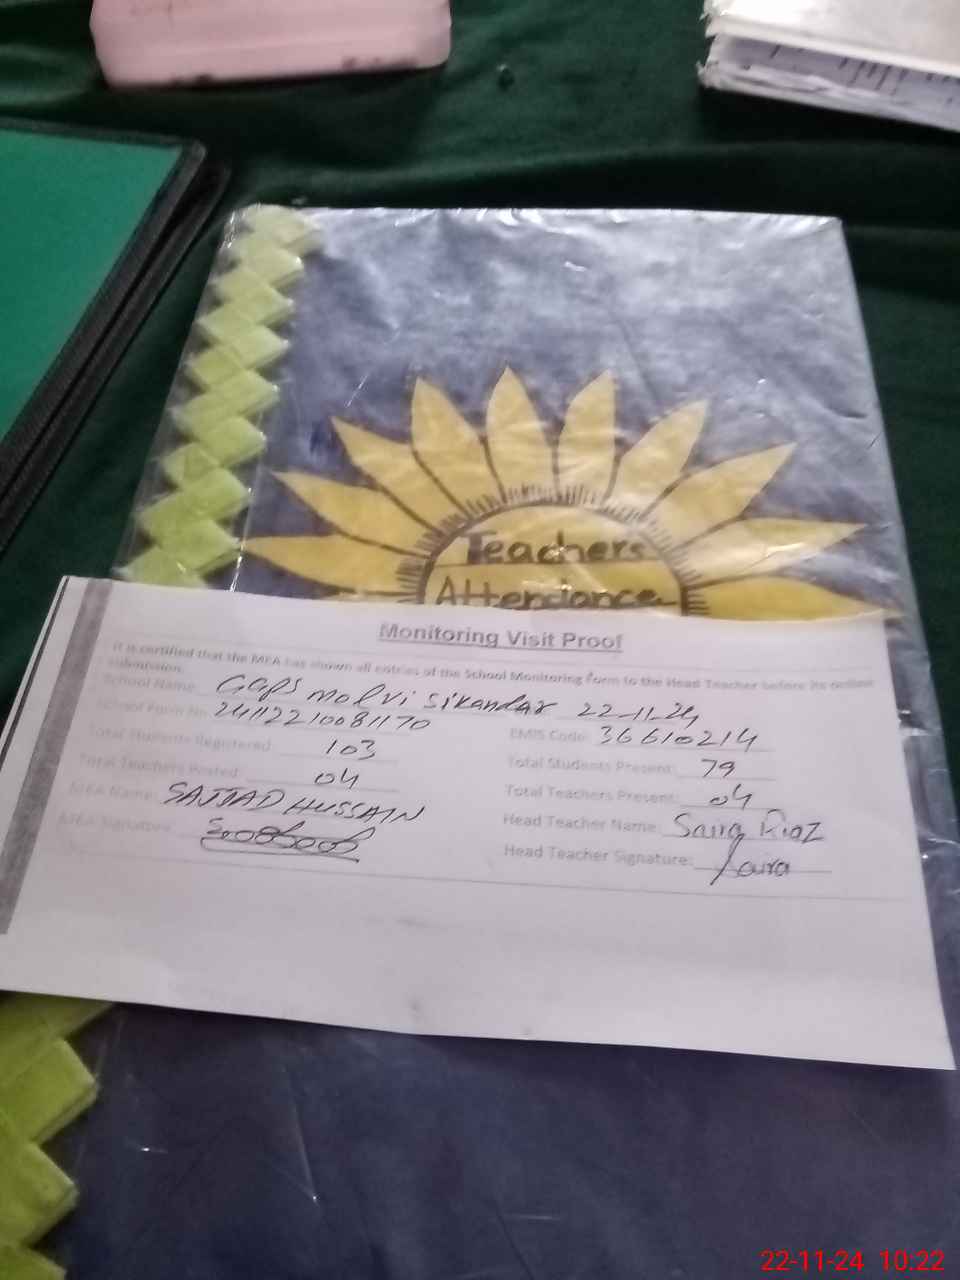 Teachers
Attendance
Monitoring Visit Proof
It is certified that the MEA has shown all entries of the School Monitoring Form to the Head Teacher before its online
submission.
School Name: GGPS molvi Sikandar 22-11-24
School Form No: 24112210081170 EMIS Code: 36610214
Total Students Registered: 103 Total Students Present: 79
Total Teachers Posted: 04 Total Teachers Present: 04
MEA Name: SAJJAD HUSSAIN Head Teacher Name: Saira Riaz
MEA Signature: Head Teacher Signature: Saira
22-11-24 10:22